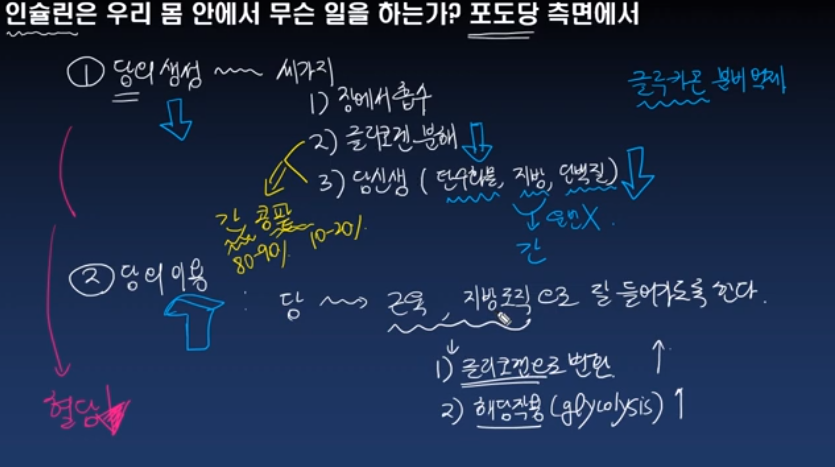 인슐린은 우리 몸 안에서 무슨 일을 하는가? 포도당 측면에서
① 당의 생성 ~~~ 세가지
글루카곤 분비 억제
1) 장에서 흡수
2) 글리코겐 분해
3) 당신생 (탄수화물, 지방, 단백질)
간, 콩팥
80-90% 10-20%
오면 X
간
② 당의 이용
: 당 ~~> 근육, 지방조직으로 잘 들어가도록 한다.
1) 글리코겐으로 변환 ↑
2) 해당작용 (glycolysis) ↑
혈당↓